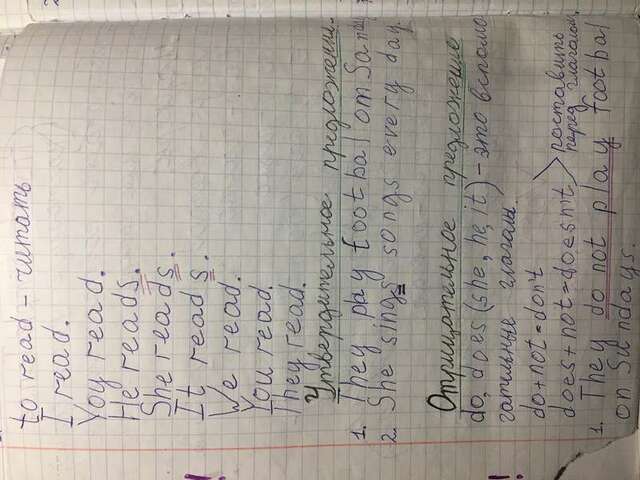 to read - читать
I read.
Yoy read.
He reads.
She reads.
It reads.
We read.
You read.
They read.
Утвердительное предложени
1. They play footbal om San
2. She sings songs every day.
Отрицательное предложение
do, does (she, he, it) - это вспомо
гательные глаголы.
do + not = don't
does + not = doesn't > поставить
перед глаголом
1. They do not play footbal
on Sundays